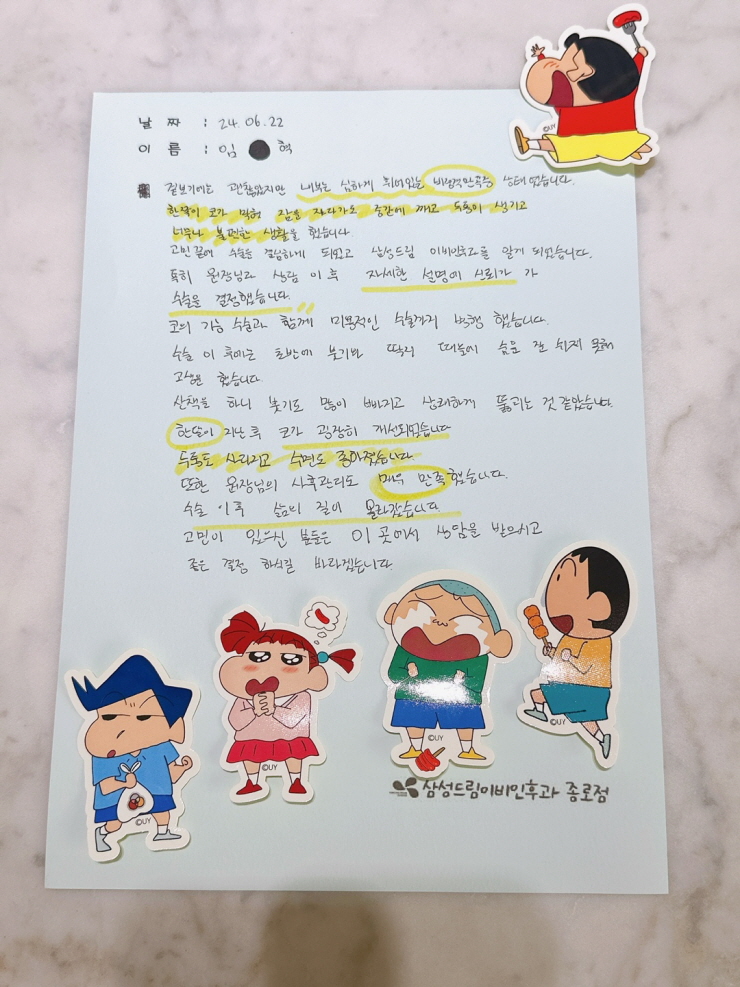 날 짜 : 24.06.22
이 름 : 임 혁
겉보기에는 괜찮았지만 내부는 심하게 휘어있는 비중격만곡증 상태 였습니다.
한쪽이 코가 막혀 잠을 자다가도 중간에 깨고 두통이 생기고
너무나 불편한 생활을 했습니다.
고민 끝에 수술을 결심하게 되었고 삼성드림 이비인후과를 알게 되었습니다.
특히 원장님과 상담 이 후 자세한 설명에 신뢰가 가
수술을 결정했습니다.
코의 기능 수술과 함께 미용적인 수술까지 병행 했습니다.
수술 이 후에는 초반에 붓기와 딱지 때문에 숨을 잘 쉬지 못해
고생을 했습니다
산책을 하니 붓기도 많이 빠지고 상쾌하게 뚫리는 것 같았습니다.
한달이 지난 후 코가 굉장히 개선되었습니다
두통도 사라지고 수면도 좋아졌습니다.
또한 원장님의 사후관리도 매우 만족했습니다.
수술 이후 삶의 질이 올라갔습니다.
고민이 있으신 분들은 이 곳에서 상담을 받으시고
좋은 결정 하시길 바라겠습니다
©UY
©UY
©UY
©UY
©UY
삼성드림이비인후과 종로점